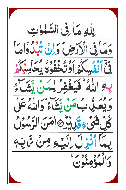 لِلَّهِ مَا فِى السَّمَٰوَٰتِ
وَمَا فِى الْأَرْضِ وَإِن تُبْدُوا۟ مَا
فِىٓ أَنفُسِكُمْ أَوْ تُخْفُوهُ يُحَاسِبْكُم
بِهِ اللَّهُ فَيَغْفِرُ لِمَن يَشَآءُ
وَيُعَذِّبُ مَن يَشَآءُ وَاللَّهُ عَلَىٰ
كُلِّ شَىْءٍ قَدِيرٌ ءَامَنَ الرَّسُولُ
بِمَآ أُنزِلَ إِلَيْهِ مِن رَّبِّهِ
وَالْمُؤْمِنُونَ